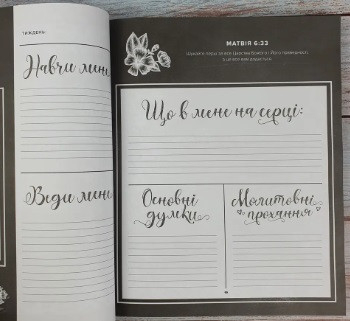 ТИЖДЕНЬ
Навчи мене
Веди мене
МАТВІЯ 6:33
Що в мене на серці:
Основні
думки
Молитовні
прохання